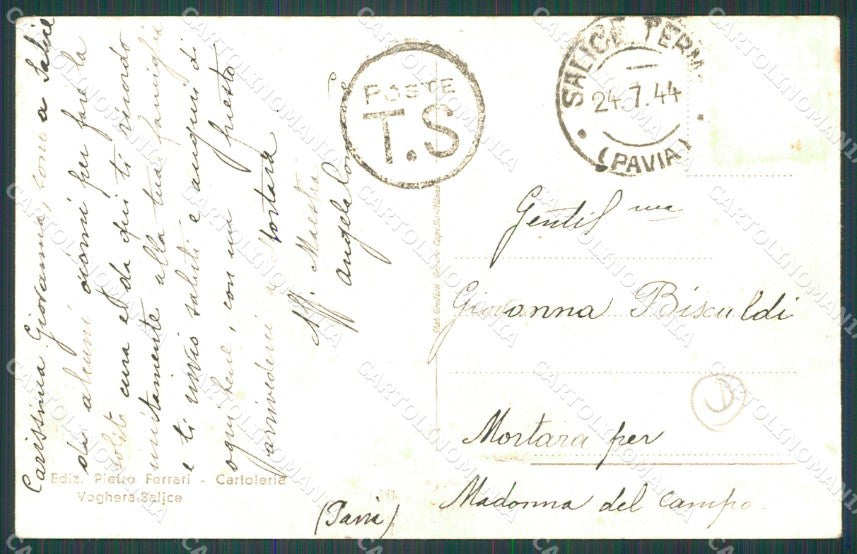 Carissima Giovanna, sono a Salice
da alcuni giorni per fare la
solita cura ed da qui ti ricordo
unitamente alla tua famiglia
e ti invio saluti e auguri di
ogni bene, con un presto
arrivederci a Mortara
Aff. Maestra
Angela
POSTE
T.S
SALICE TERM
24.7.44
(PAVIA)
Gentil ma
Giovanna Biscaldi
Mortara per
Madonna del Campo
(Pavia)
Ediz. Pietro Ferrari - Cartoleria
Voghera-Salice
CARTOLINOMANIA